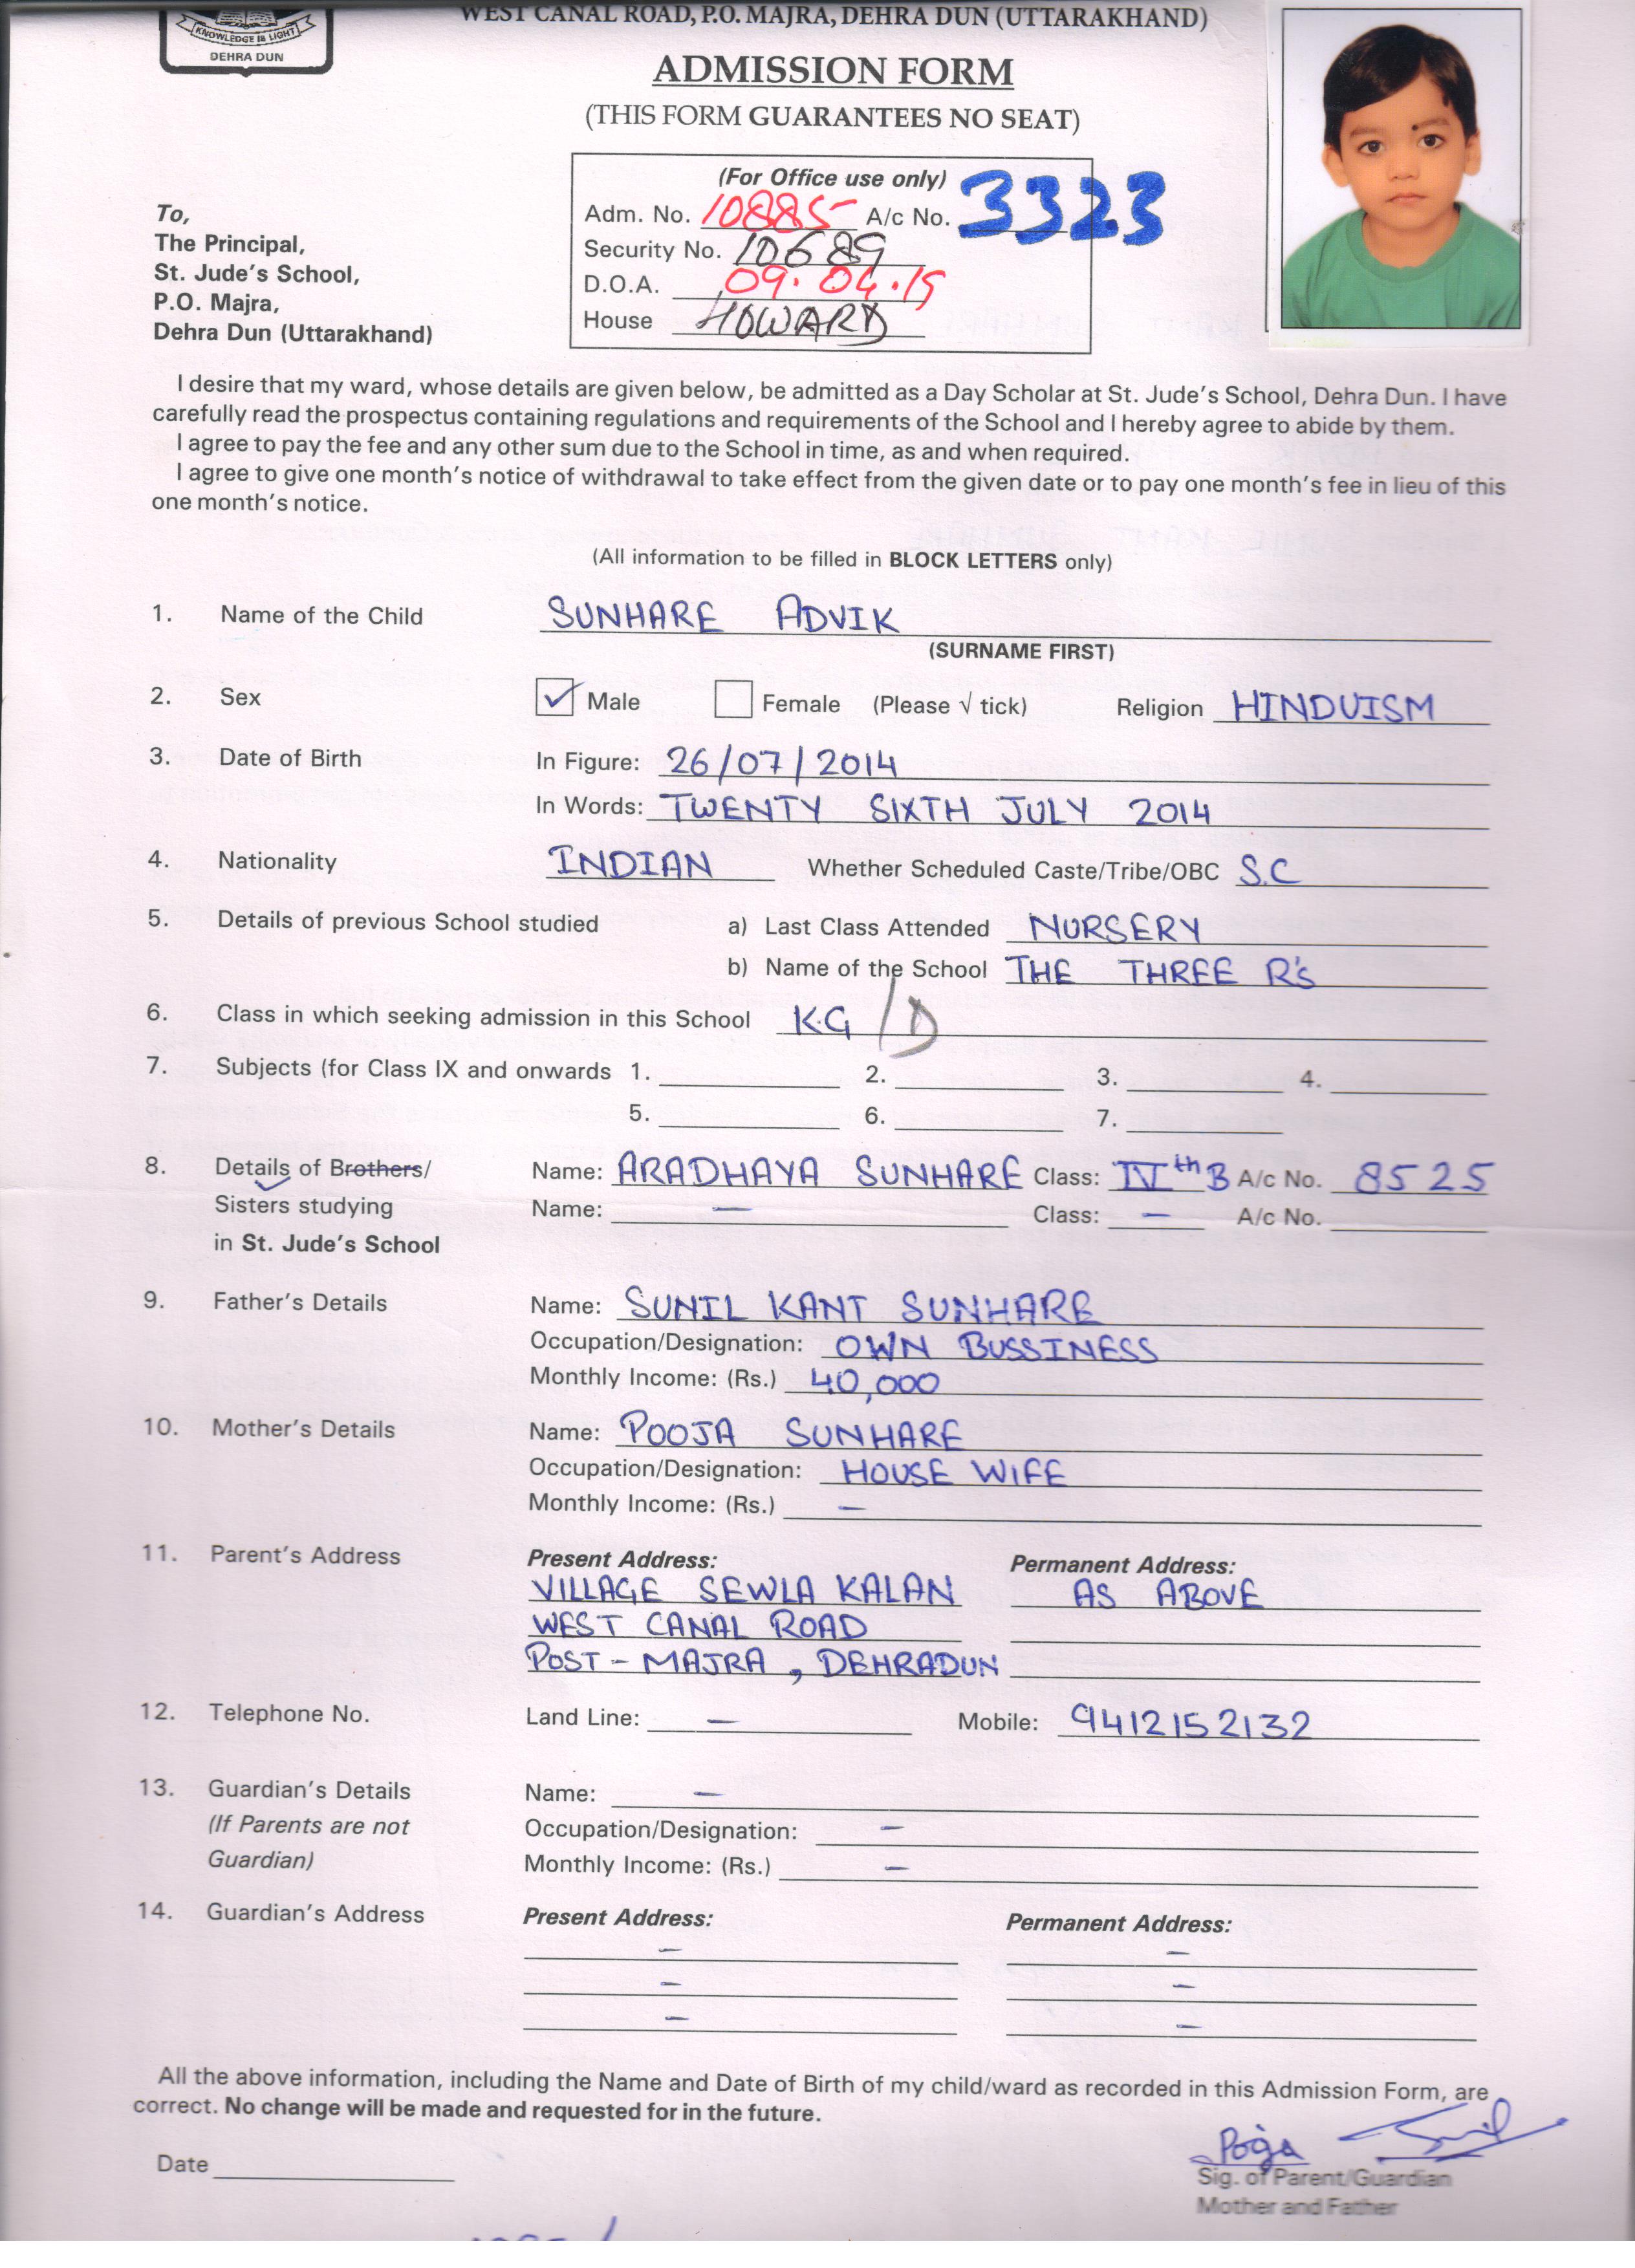 WEST CANAL ROAD, P.O. MAJRA, DEHRA DUN (UTTARAKHAND)
KNOWLEDGE IS LIGHT
DEHRA DUN
ADMISSION FORM
(THIS FORM GUARANTEES NO SEAT)
(For Office use only)
Adm. No. 10885 A/c No. 3323
Security No. 10689
D.O.A. 09.04.19
House HOWARD
To,
The Principal,
St. Jude's School,
P.O. Majra,
Dehra Dun (Uttarakhand)
I desire that my ward, whose details are given below, be admitted as a Day Scholar at St. Jude's School, Dehra Dun. I have
carefully read the prospectus containing regulations and requirements of the School and I hereby agree to abide by them.
I agree to pay the fee and any other sum due to the School in time, as and when required.
I agree to give one month's notice of withdrawal to take effect from the given date or to pay one month's fee in lieu of this
one month's notice.
(All information to be filled in BLOCK LETTERS only)
1. Name of the Child SUNHARE ADVIK
(SURNAME FIRST)
2. Sex ✓ Male Female (Please √ tick) Religion HINDUISM
3. Date of Birth In Figure: 26/07/2014
In Words: TWENTY SIXTH JULY 2014
4. Nationality INDIAN Whether Scheduled Caste/Tribe/OBC S.C
5. Details of previous School studied a) Last Class Attended NURSERY
b) Name of the School THE THREE R's
6. Class in which seeking admission in this School K.G / D
7. Subjects (for Class IX and onwards 1. 2. 3. 4.
5. 6. 7.
8. Details of Brothers/ Name: ARADHAYA SUNHARE Class: IVth B A/c No. 8525
Sisters studying Name: – Class: – A/c No.
in St. Jude's School
9. Father's Details Name: SUNIL KANT SUNHARE
Occupation/Designation: OWN BUSSINESS
Monthly Income: (Rs.) 40,000
10. Mother's Details Name: POOJA SUNHARE
Occupation/Designation: HOUSE WIFE
Monthly Income: (Rs.) –
11. Parent's Address Present Address: Permanent Address:
VILLAGE SEWLA KALAN AS ABOVE
WEST CANAL ROAD
POST - MAJRA, DEHRADUN
12. Telephone No. Land Line: – Mobile: 9412152132
13. Guardian's Details Name: –
(If Parents are not Occupation/Designation: –
Guardian) Monthly Income: (Rs.) –
14. Guardian's Address Present Address: Permanent Address:
– –
– –
– –
All the above information, including the Name and Date of Birth of my child/ward as recorded in this Admission Form, are
correct. No change will be made and requested for in the future.
Pooja Sunil
Date Sig. of Parent/Guardian
Mother and Father